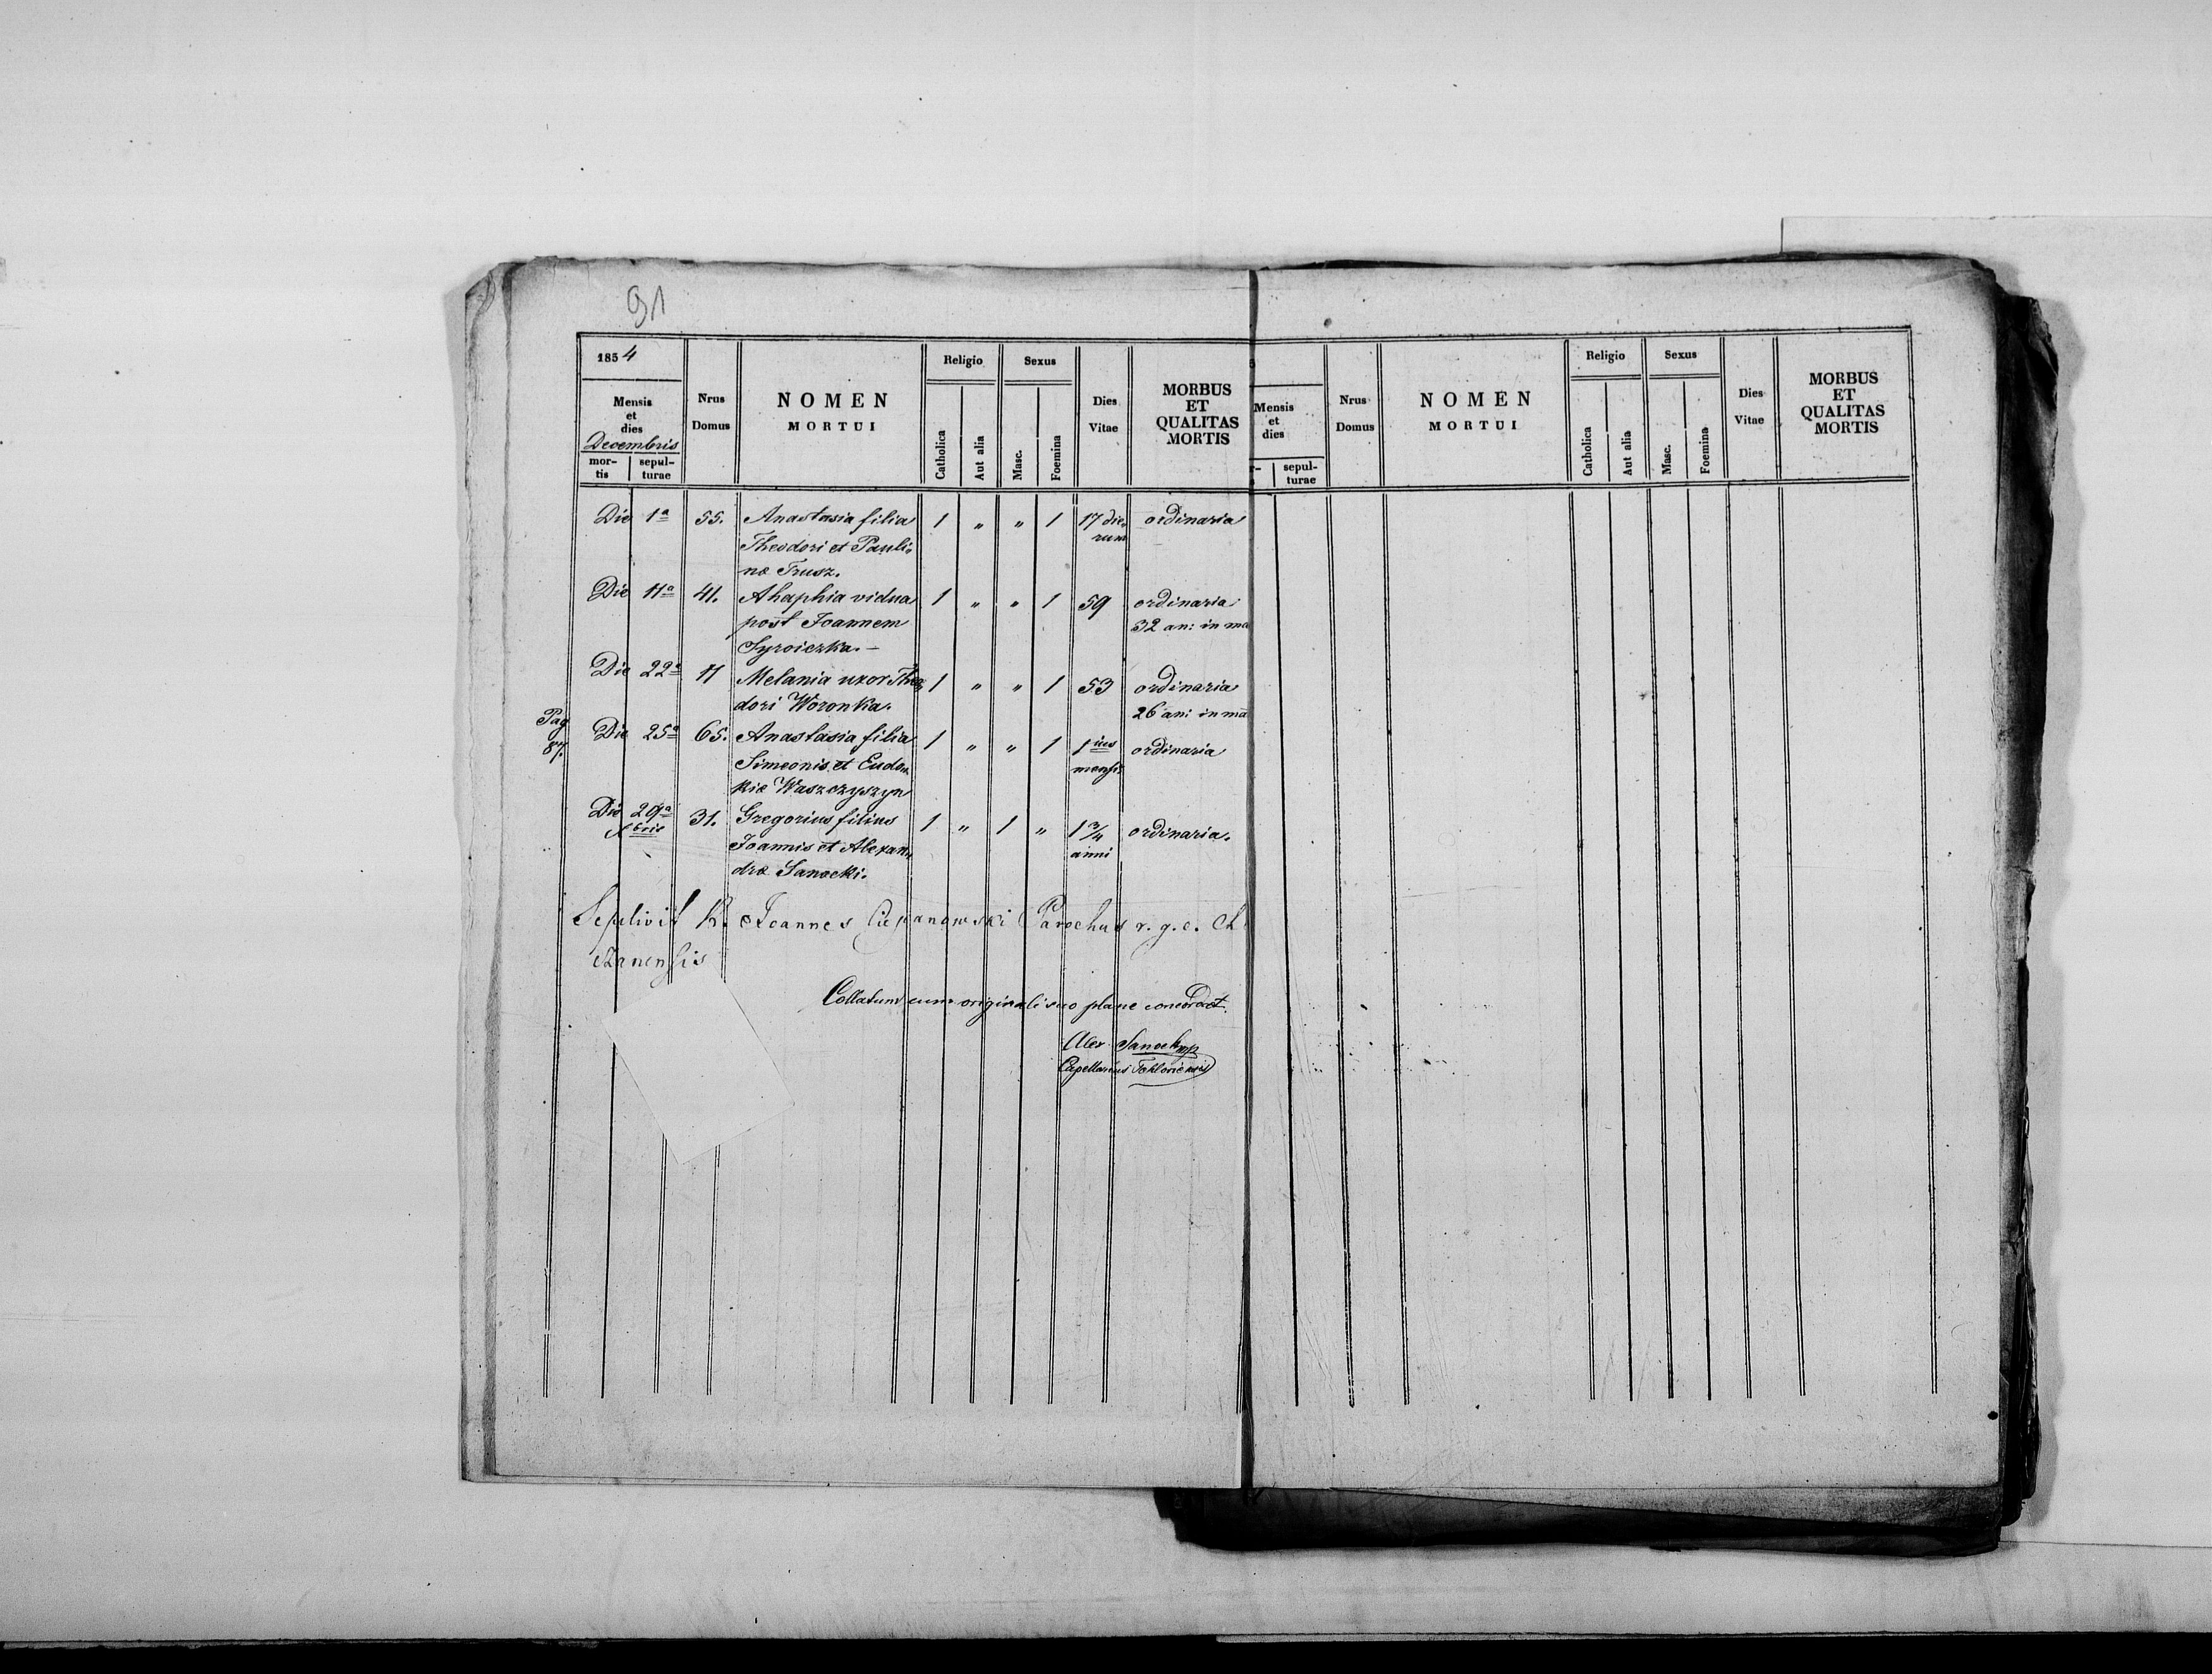 91
1854
Mensis
et
dies
Decembris
mor-
tis
sepul-
turae
Nrus
Domus
NOMEN
MORTUI
Religio
Catholica
Aut alia
Sexus
Masc.
Foemina
Dies
Vitae
MORBUS
ET
QUALITAS
MORTIS
Die 1a 55. Anastasia filia 1 „ „ 1 17 die- ordinaria
Theodori et Pauli- rum
næ Trusz.
Die 11a 41. Ahaphia vidua 1 „ „ 1 59 ordinaria
post Joannem 32 an: in ma
Syroiczka. —
Die 22a 11 Melania uxor Theo- 1 „ „ 1 53 ordinaria
dori Woronka. 26 an: in ma
Pag
87.
Die 25a 65. Anastasia filia 1 „ „ 1 1ius ordinaria
Simeonis et Eudo- mensis
kiæ Waszczyszyn
Die 29a 31. Gregorius filius 1 „ 1 „ 1 3/4 ordinaria.
Xbris Joannis et Alexan- anni
dræ Sanocki.
Sepelivit Joannes Parochus r. g. c.
Collatum cum originali suo plane concordat.
Alex Sanocki mp
Capellanus
Mensis
et
dies
sepul-
turae
Nrus
Domus
NOMEN
MORTUI
Religio
Catholica
Aut alia
Sexus
Masc.
Foemina
Dies
Vitae
MORBUS
ET
QUALITAS
MORTIS